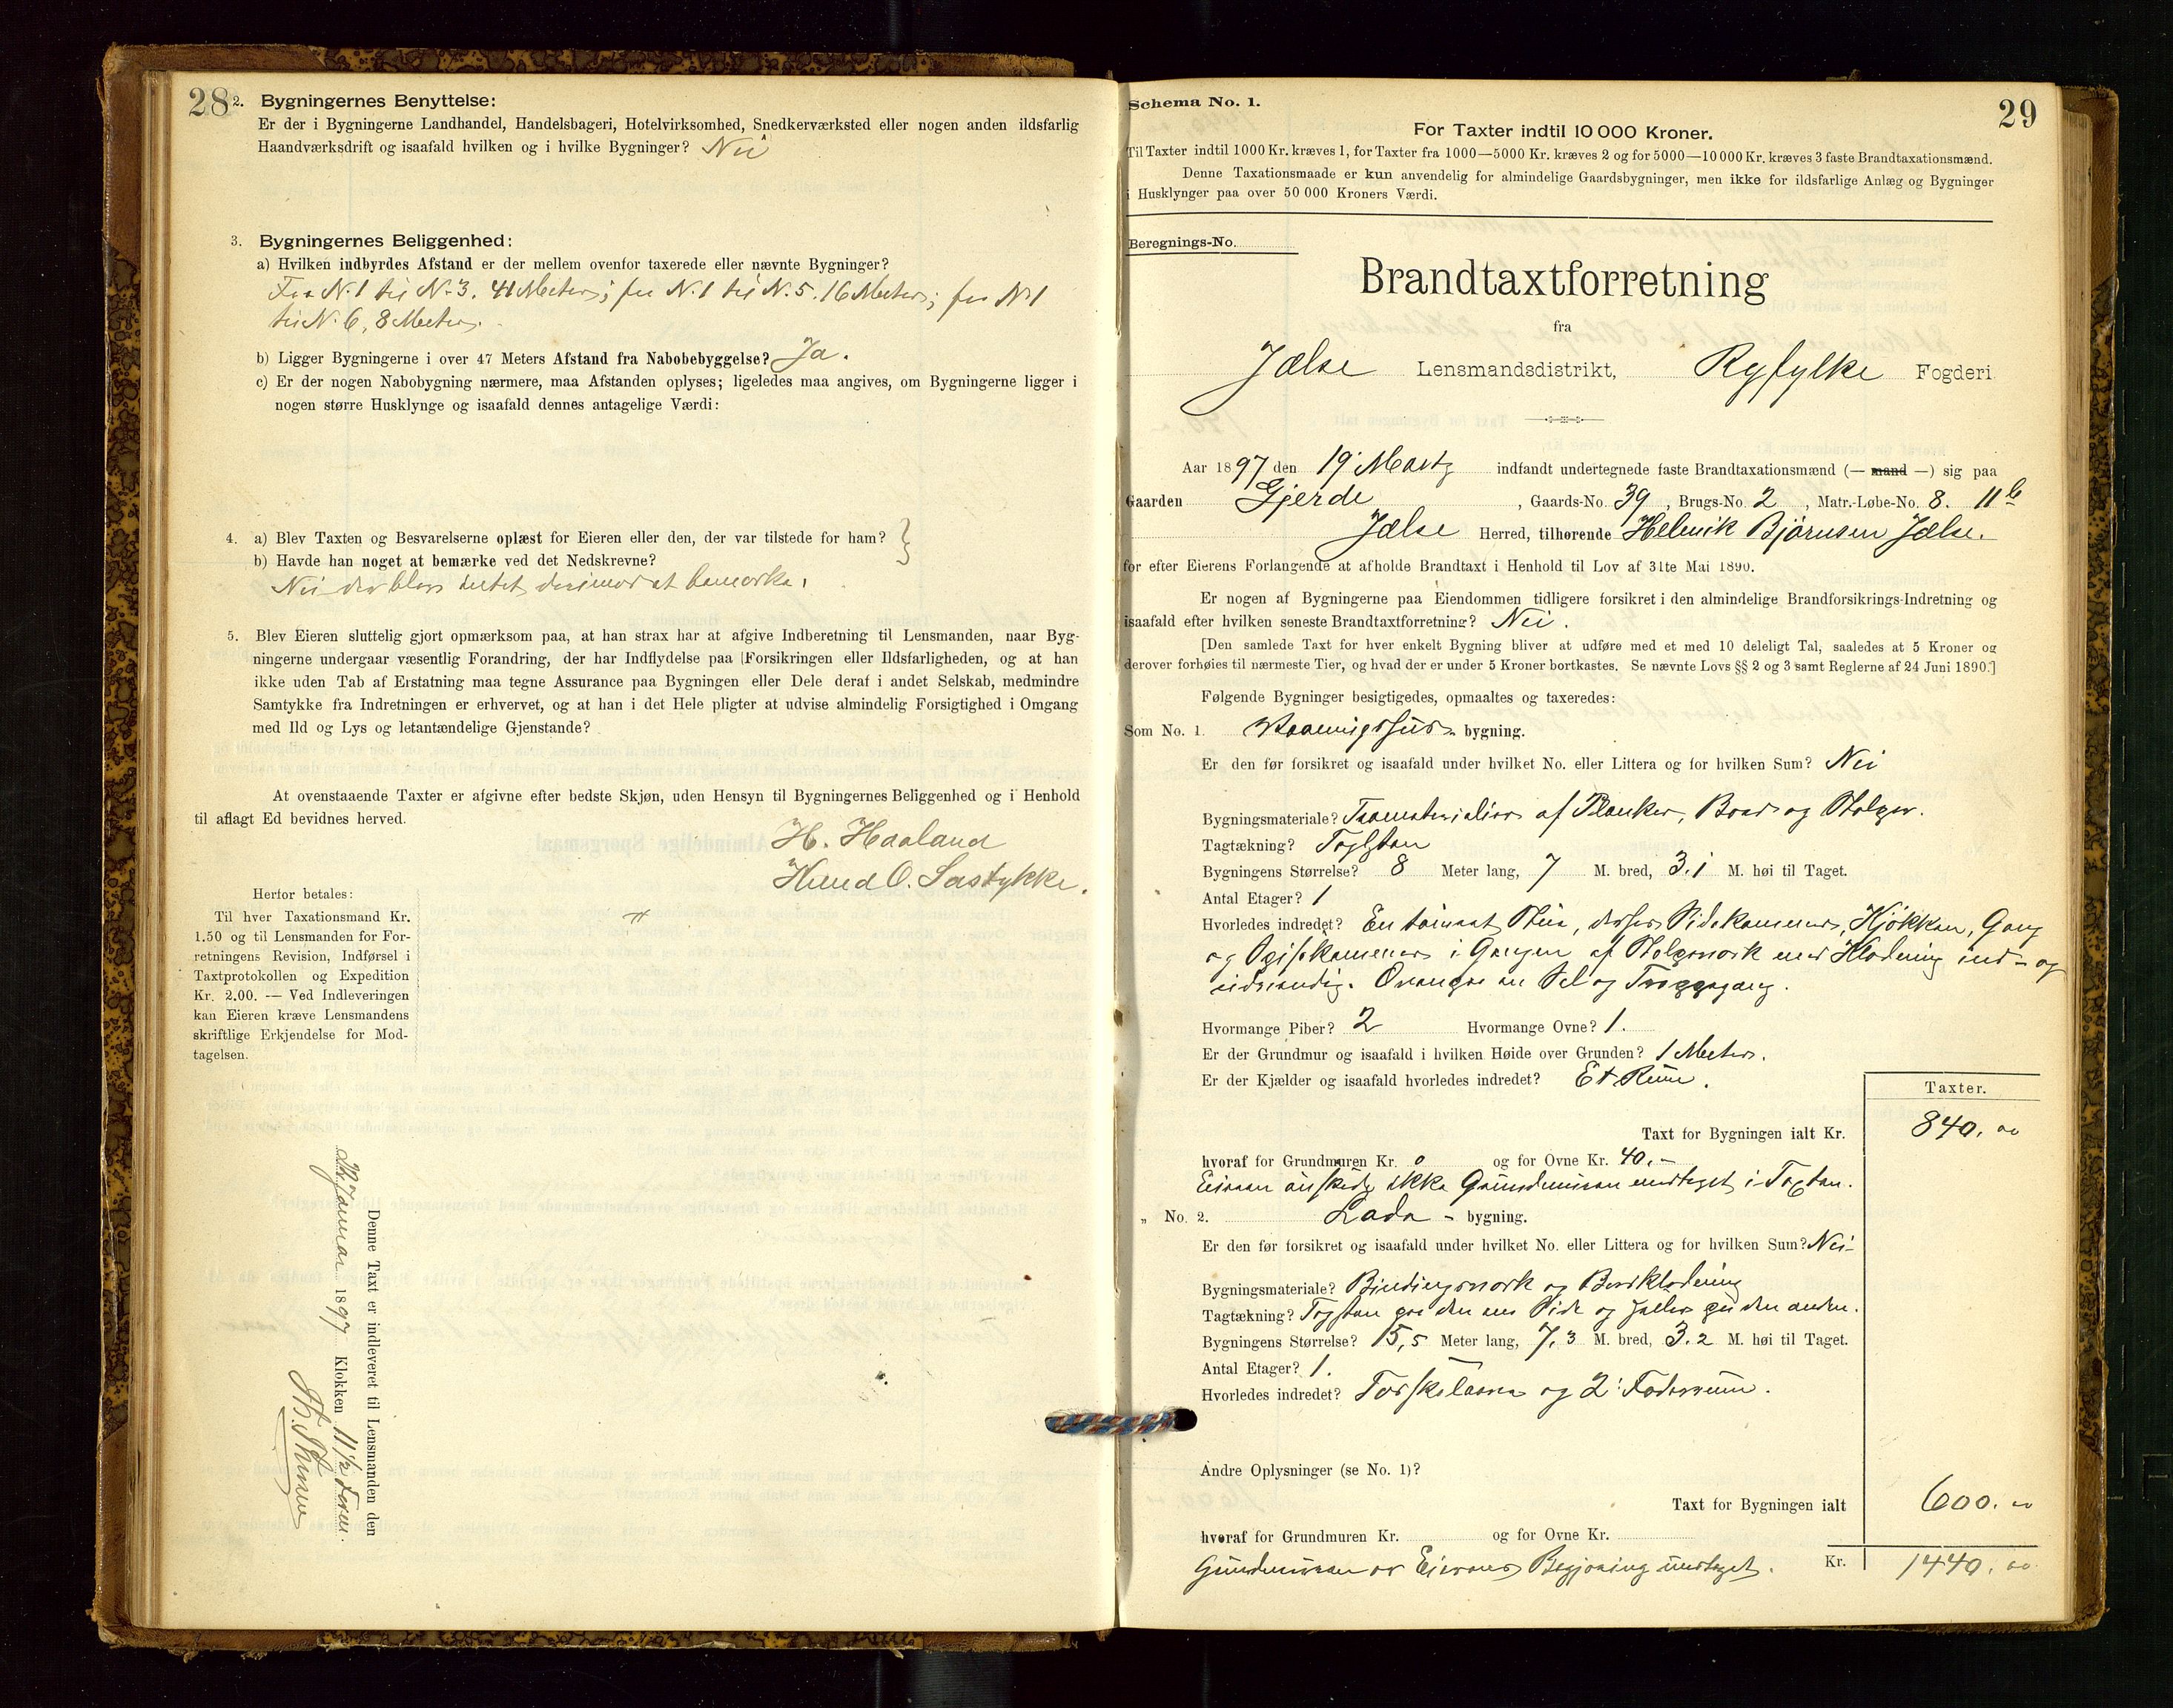 28
2. Bygningernes Benyttelse:
Er der i Bygningerne Landhandel, Handelsbageri, Hotelvirksomhed, Snedkerværksted eller nogen anden ildsfarlig
Haandværksdrift og isaafald hvilken og i hvilke Bygninger? Nei
3. Bygningernes Beliggenhed:
a) Hvilken indbyrdes Afstand er der mellem ovenfor taxerede eller nævnte Bygninger?
Fra N. 1 til N. 3. 41 Meter; fra N. 1 til N. 5. 16 Meter; fra N. 1
til N. 6, 8 Meter.
b) Ligger Bygningerne i over 47 Meters Afstand fra Nabobebyggelse? Ja.
c) Er der nogen Nabobygning nærmere, maa Afstanden oplyses; ligeledes maa angives, om Bygningerne ligger i
nogen større Husklynge og isaafald dennes antagelige Værdi:
4. a) Blev Taxten og Besvarelserne oplæst for Eieren eller den, der var tilstede for ham?
b) Havde han noget at bemærke ved det Nedskrevne?
Nei der blev intet derimod at bemærke.
5. Blev Eieren sluttelig gjort opmærksom paa, at han strax har at afgive Indberetning til Lensmanden, naar Byg-
ningerne undergaar væsentlig Forandring, der har Indflydelse paa (Forsikringen eller Ildsfarligheden, og at han
ikke uden Tab af Erstatning maa tegne Assurance paa Bygningen eller Dele deraf i andet Selskab, medmindre
Samtykke fra Indretningen er erhvervet, og at han i det Hele pligter at udvise almindelig Forsigtighed i Omgang
med Ild og Lys og letantændelige Gjenstande?
At ovenstaaende Taxter er afgivne efter bedste Skjøn, uden Hensyn til Bygningernes Beliggenhed og i Henhold
til aflagt Ed bevidnes herved.
H. Haaland
Knud O. Sastykke.
Herfor betales:
Til hver Taxationsmand Kr.
1.50 og til Lensmanden for For-
retningens Revision, Indførsel i
Taxtprotokollen og Expedition
Kr. 2.00. — Ved Indleveringen
kan Eieren kræve Lensmandens
skriftlige Erkjendelse for Mod-
tagelsen.
Denne Taxt er indleveret til Lensmanden den
Januar 1897 Klokken 11 1/2 Form.
29
Schema No. 1.
For Taxter indtil 10 000 Kroner.
Til Taxter indtil 1000 Kr. kræves 1, for Taxter fra 1000—5000 Kr. kræves 2 og for 5000—10 000 Kr. kræves 3 faste Brandtaxationsmænd.
Denne Taxationsmaade er kun anvendelig for almindelige Gaardsbygninger, men ikke for ildsfarlige Anlæg og Bygninger
i Husklynger paa over 50 000 Kroners Værdi.
Beregnings-No.
Brandtaxtforretning
fra
Jælse Lensmandsdistrikt, Ryfylke Fogderi
Aar 1897 den 19 Martz indfandt undertegnede faste Brandtaxationsmænd (— mand —) sig paa
Gaarden Gjerde, Gaards-No. 39, Brugs-No. 2, Matr.-Løbe-No. 8. 11 b
Jælse Herred, tilhørende Helmik Bjørnsen Jælse.
for efter Eierens Forlangende at afholde Brandtaxt i Henhold til Lov af 31te Mai 1890.
Er nogen af Bygningerne paa Eiendommen tidligere forsikret i den almindelige Brandforsikrings-Indretning og
isaafald efter hvilken seneste Brandtaxtforretning? Nei.
[Den samlede Taxt for hver enkelt Bygning bliver at udføre med et med 10 deleligt Tal, saaledes at 5 Kroner og
derover forhøies til nærmeste Tier, og hvad der er under 5 Kroner bortkastes. Se nævnte Lovs §§ 2 og 3 samt Reglerne af 24 Juni 1890.]
Følgende Bygninger besigtigedes, opmaaltes og taxeredes:
Som No. 1. Vaaningshus- bygning.
Er den før forsikret og isaafald under hvilket No. eller Littera og for hvilken Sum? Nei
Bygningsmateriale? Træmaterialier af Planker, Bord og Stolper.
Tagtækning? Taglsten
Bygningens Størrelse? 8 Meter lang, 7 M. bred, 3.1 M. høi til Taget.
Antal Etager? 1
Hvorledes indredet? En tømret Stue, derfor Sidekammers, Kjøkken, Gang
og Spisekammers i Gangen af Stolpeverk med Klædning ind- og
udvendig. Ovenpaa en Sel og Trappegang.
Hvormange Piber? 2 Hvormange Ovne? 1.
Er der Grundmur og isaafald i hvilken Høide over Grunden? 1 Meter.
Er der Kjælder og isaafald hvorledes indredet? Et Rum.
Taxter.
Taxt for Bygningen ialt Kr. 840. 00
hvoraf for Grundmuren Kr. 0 og for Ovne Kr. 40.-
Eieren ønskede ikke Grundmuren medtaget i Taxten.
„ No. 2. Lade - bygning.
Er den før forsikret og isaafald under hvilket No. eller Littera og for hvilken Sum? Nei-
Bygningsmateriale? Bindingsverk og Bordklædning
Tagtækning? Tagsten paa den ene Side og Heller paa den anden.
Bygningens Størrelse? 15,5 Meter lang, 7,3 M. bred, 3.2 M. høi til Taget.
Antal Etager? 1.
Hvorledes indredet? Tærskelaave og 2 Foderrum.
Andre Oplysninger (se No. 1)?
Taxt for Bygningen ialt 600. 00
hvoraf for Grundmuren Kr. og for Ovne Kr.
Grundmuren er Eierens Begjæring undtaget. Kr. 1440. 00